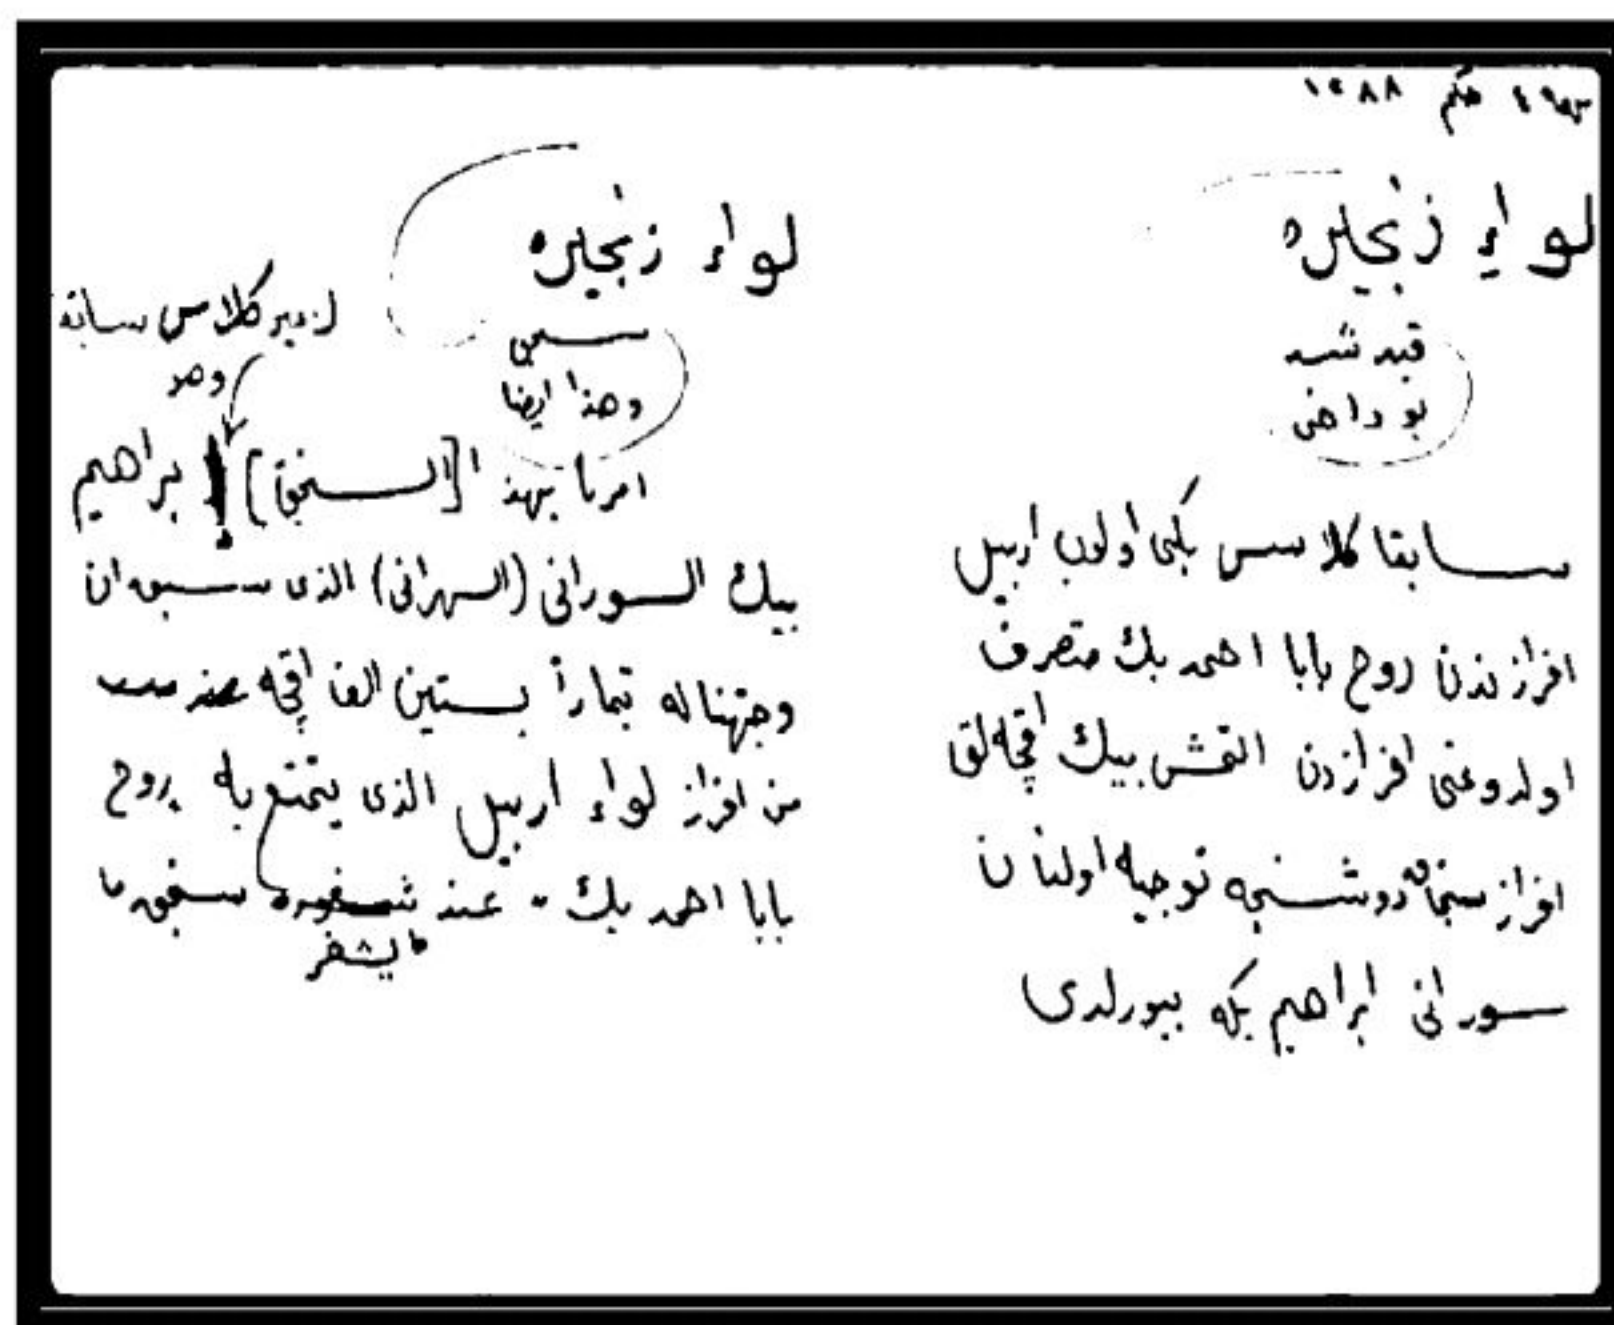 حكم ١٢٨٨
لواء زنجيره
قيد شد
بو داخى
سابقا كلاس بكى اولوب اربيل
افرازندن روح بابا احمد بك متصرف
اولدوغى افرازدن التمش بيك اقچه لق
افراز سنجاق دوشنجه توجيه اولنان
سورانى ابراهيم بكه بيورلدى
لواء زنجيره
سمى
وهذا ايضا
امير كلاس سابقا
وهو
امرنا بهذا [السنجق] ابراهيم
بيك السورانى (السهرانى) الذى سبق ان
وجهنا له تيمارا بستين الف اقچه
من افراز لواء اربيل الذى يتمتع به روح
بابا احمد بك - عند سنجق ما
يشغر